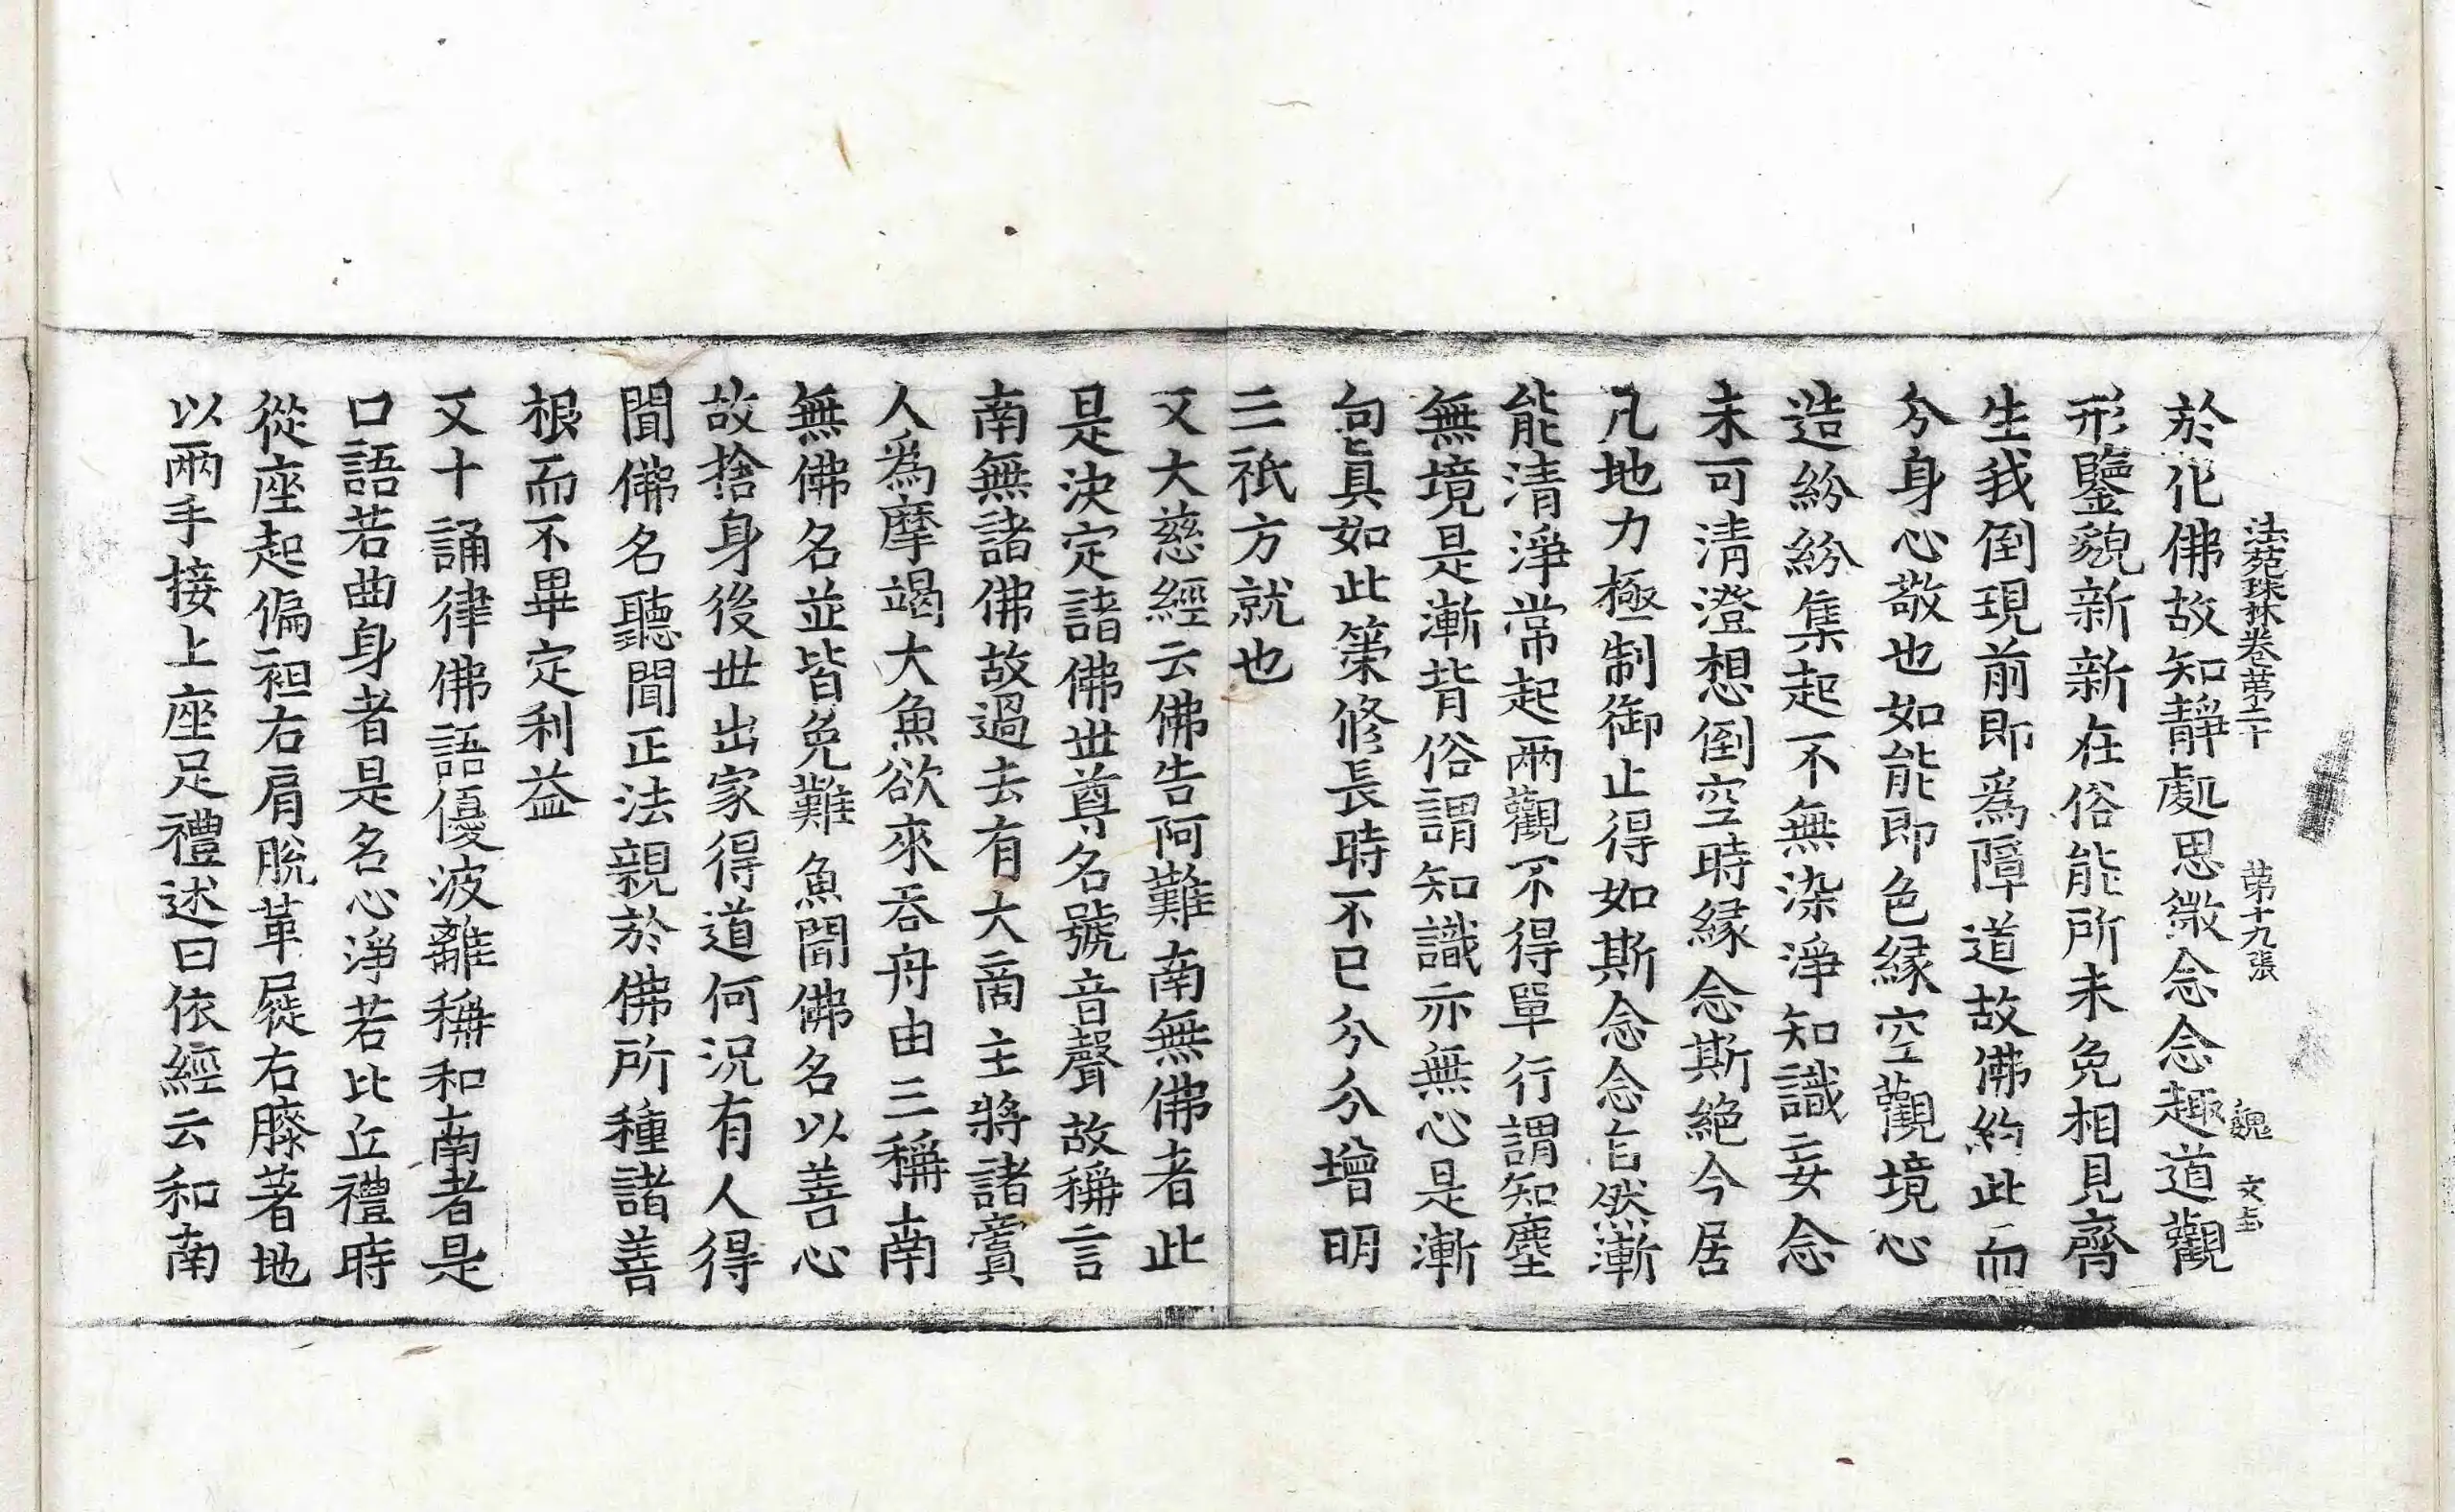 法苑珠林卷第二十 第十九張 魏 文
於化佛故知靜處思微念念趣道觀
形鑒貌新新在俗能所未免相見齊
生我倒現前即爲障道故佛約此而
分身心敬也如能即色緣空觀境心
造紛紛集起不無染淨知識妄念
未可清澄想倒空時緣念斯絕今居
凡地力極制御止得如斯念念自然漸
能清淨常起兩觀不得單行謂知塵
無境是漸背俗謂知識亦無心是漸
向眞如此策修長時不已分分增明
三祇方就也
又大慈經云佛告阿難南無佛者此
是決定諸佛世尊名號音聲故稱言
南無諸佛故過去有大商主將諸賣
人爲摩竭大魚欲來吞舟由三稱南
無佛名並皆免難魚聞佛名以善心
故捨身後世出家得道何況有人得
聞佛名聽聞正法親於佛所種諸善
根而不畢定利益
又十誦律佛語優波離稱和南者是
口語若曲身者是名心淨若比丘禮時
從座起偏袒右肩脫革屣右膝著地
以兩手接上座足禮述曰依經云和南